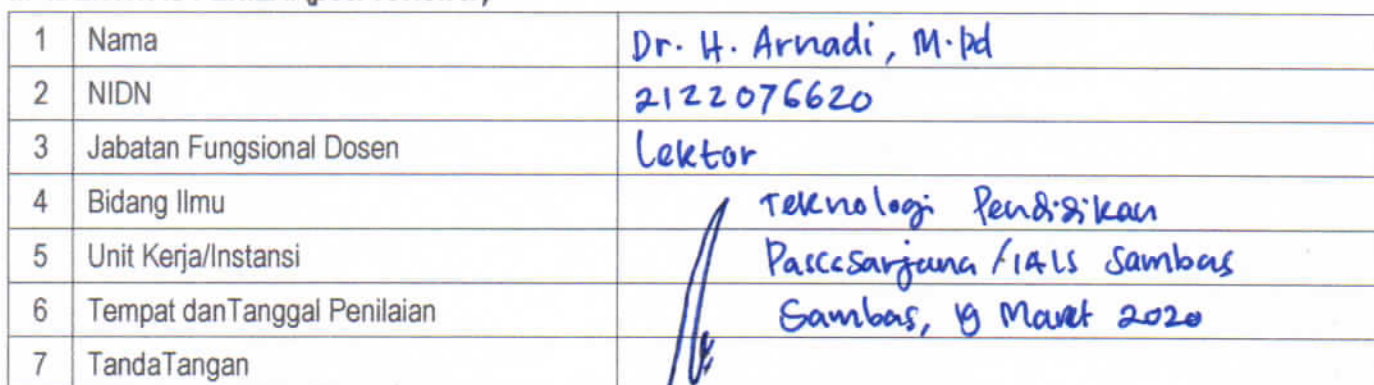 1 Nama Dr. H. Arnadi, M.pd
2 NIDN 2122076620
3 Jabatan Fungsional Dosen Lektor
4 Bidang Ilmu Teknologi Pendidikan
5 Unit Kerja/Instansi Pascasarjana /IAIS Sambas
6 Tempat danTanggal Penilaian Sambas, Maret 2020
7 TandaTangan